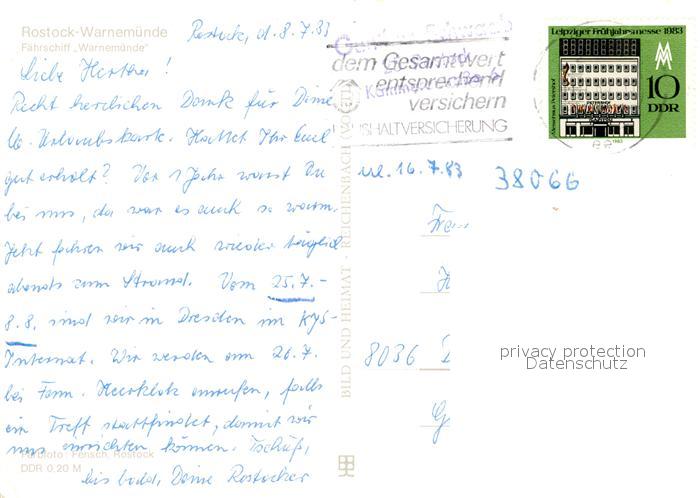 Rostock-Warnemünde
Fährschiff „Warnemünde"
Rostock, d. 8.7.83
Liebe Hertha!
Recht herzlichen Dank für Deine
lb. Urlaubskarte. Hattet Ihr Euch
gut erholt? Vor 1 Jahr warst Du
bei uns, da war es auch so warm.
Jetzt fahren wir auch wieder täglich
abends zum Strand. Vom 25.7.-
8.8. sind wir in Dresden im
Internat. Wir werden am 26.7.
bei Fam. anrufen, falls
ein Treff stattfindet, damit wir
uns einrichten können. Tschüß,
bis bald, Deine Rostocker
Farbfoto: Fensch, Rostock
DDR 0,20 M
BILD UND HEIMAT · REICHENBACH
dem Gesamtwert
entsprechend
versichern
HAUSHALTVERSICHERUNG
Leipziger Frühjahrsmesse 1983
Messehaus Petershof
10
DDR
1983
16.7.83
38066
8036
privacy protection
Datenschutz